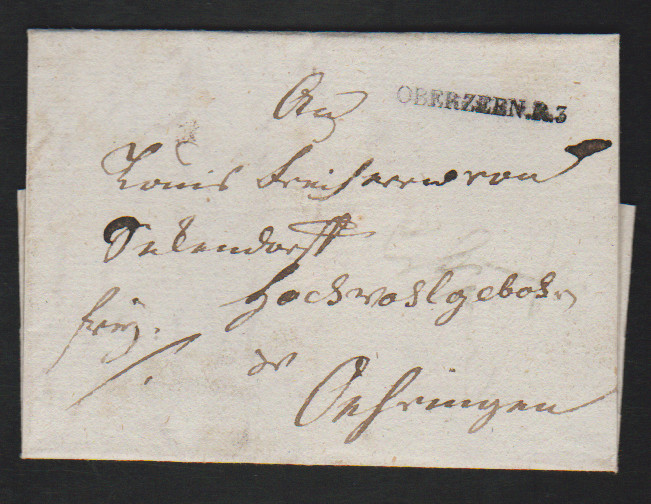 OBERZEEN.R.3
An
Louis Freiherrn von
Sekendorff
Hochwohlgebohrn
frey.
Oehringen